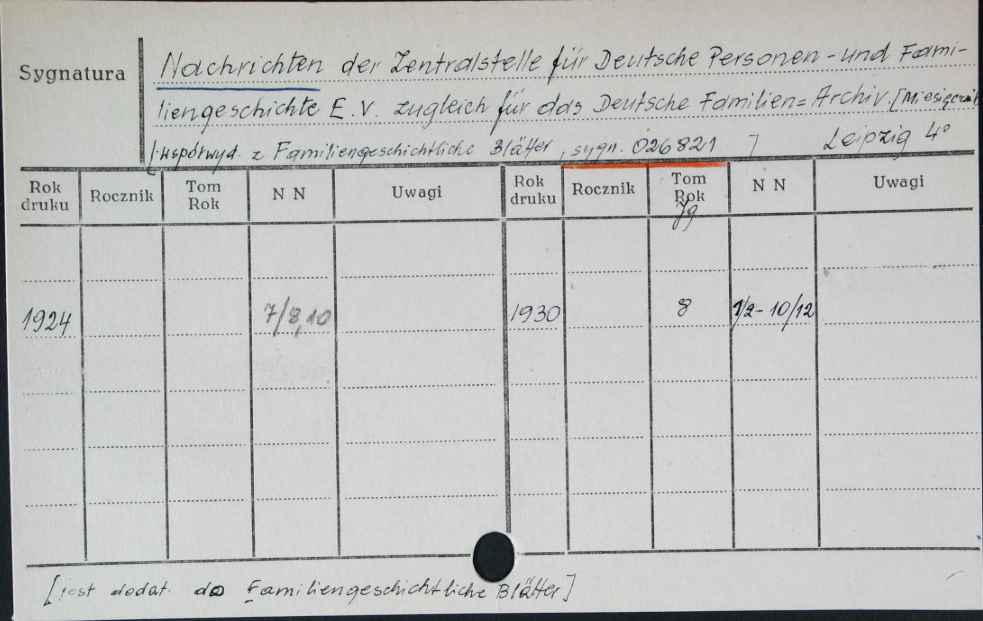 Sygnatura
Nachrichten der Zentralstelle für Deutsche Personen - und Fami-
liengeschichte E.V. zugleich für das Deutsche Familien= Archiv. [Miesięcznik
[współwyd. z Familiengeschichtliche Blätter, sygn. 026821 ] Leipzig 4°
Rok druku Rocznik Tom Rok N N Uwagi Rok druku Rocznik Tom Rok N N Uwagi
Jg
1924 7/8,10 1930 8 1/2 - 10/12
[jest dodat. do Familiengeschichtliche Blätter]